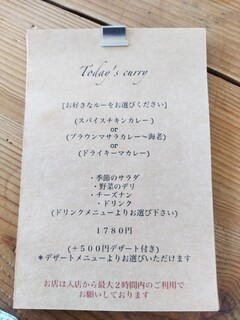 Today's curry
[お好きなルーをお選びください]
(スパイスチキンカレー)
or
(ブラウンマサラカレー～海老)
or
(ドライキーマカレー)
・季節のサラダ
・野菜のデリ
・チーズナン
・ドリンク
(ドリンクメニューよりお選び下さい)
1780円
(+500円デザート付き)
＊デザートメニューよりお選びいただけます
お店は入店から最大2時間内のご利用で
お願いしております